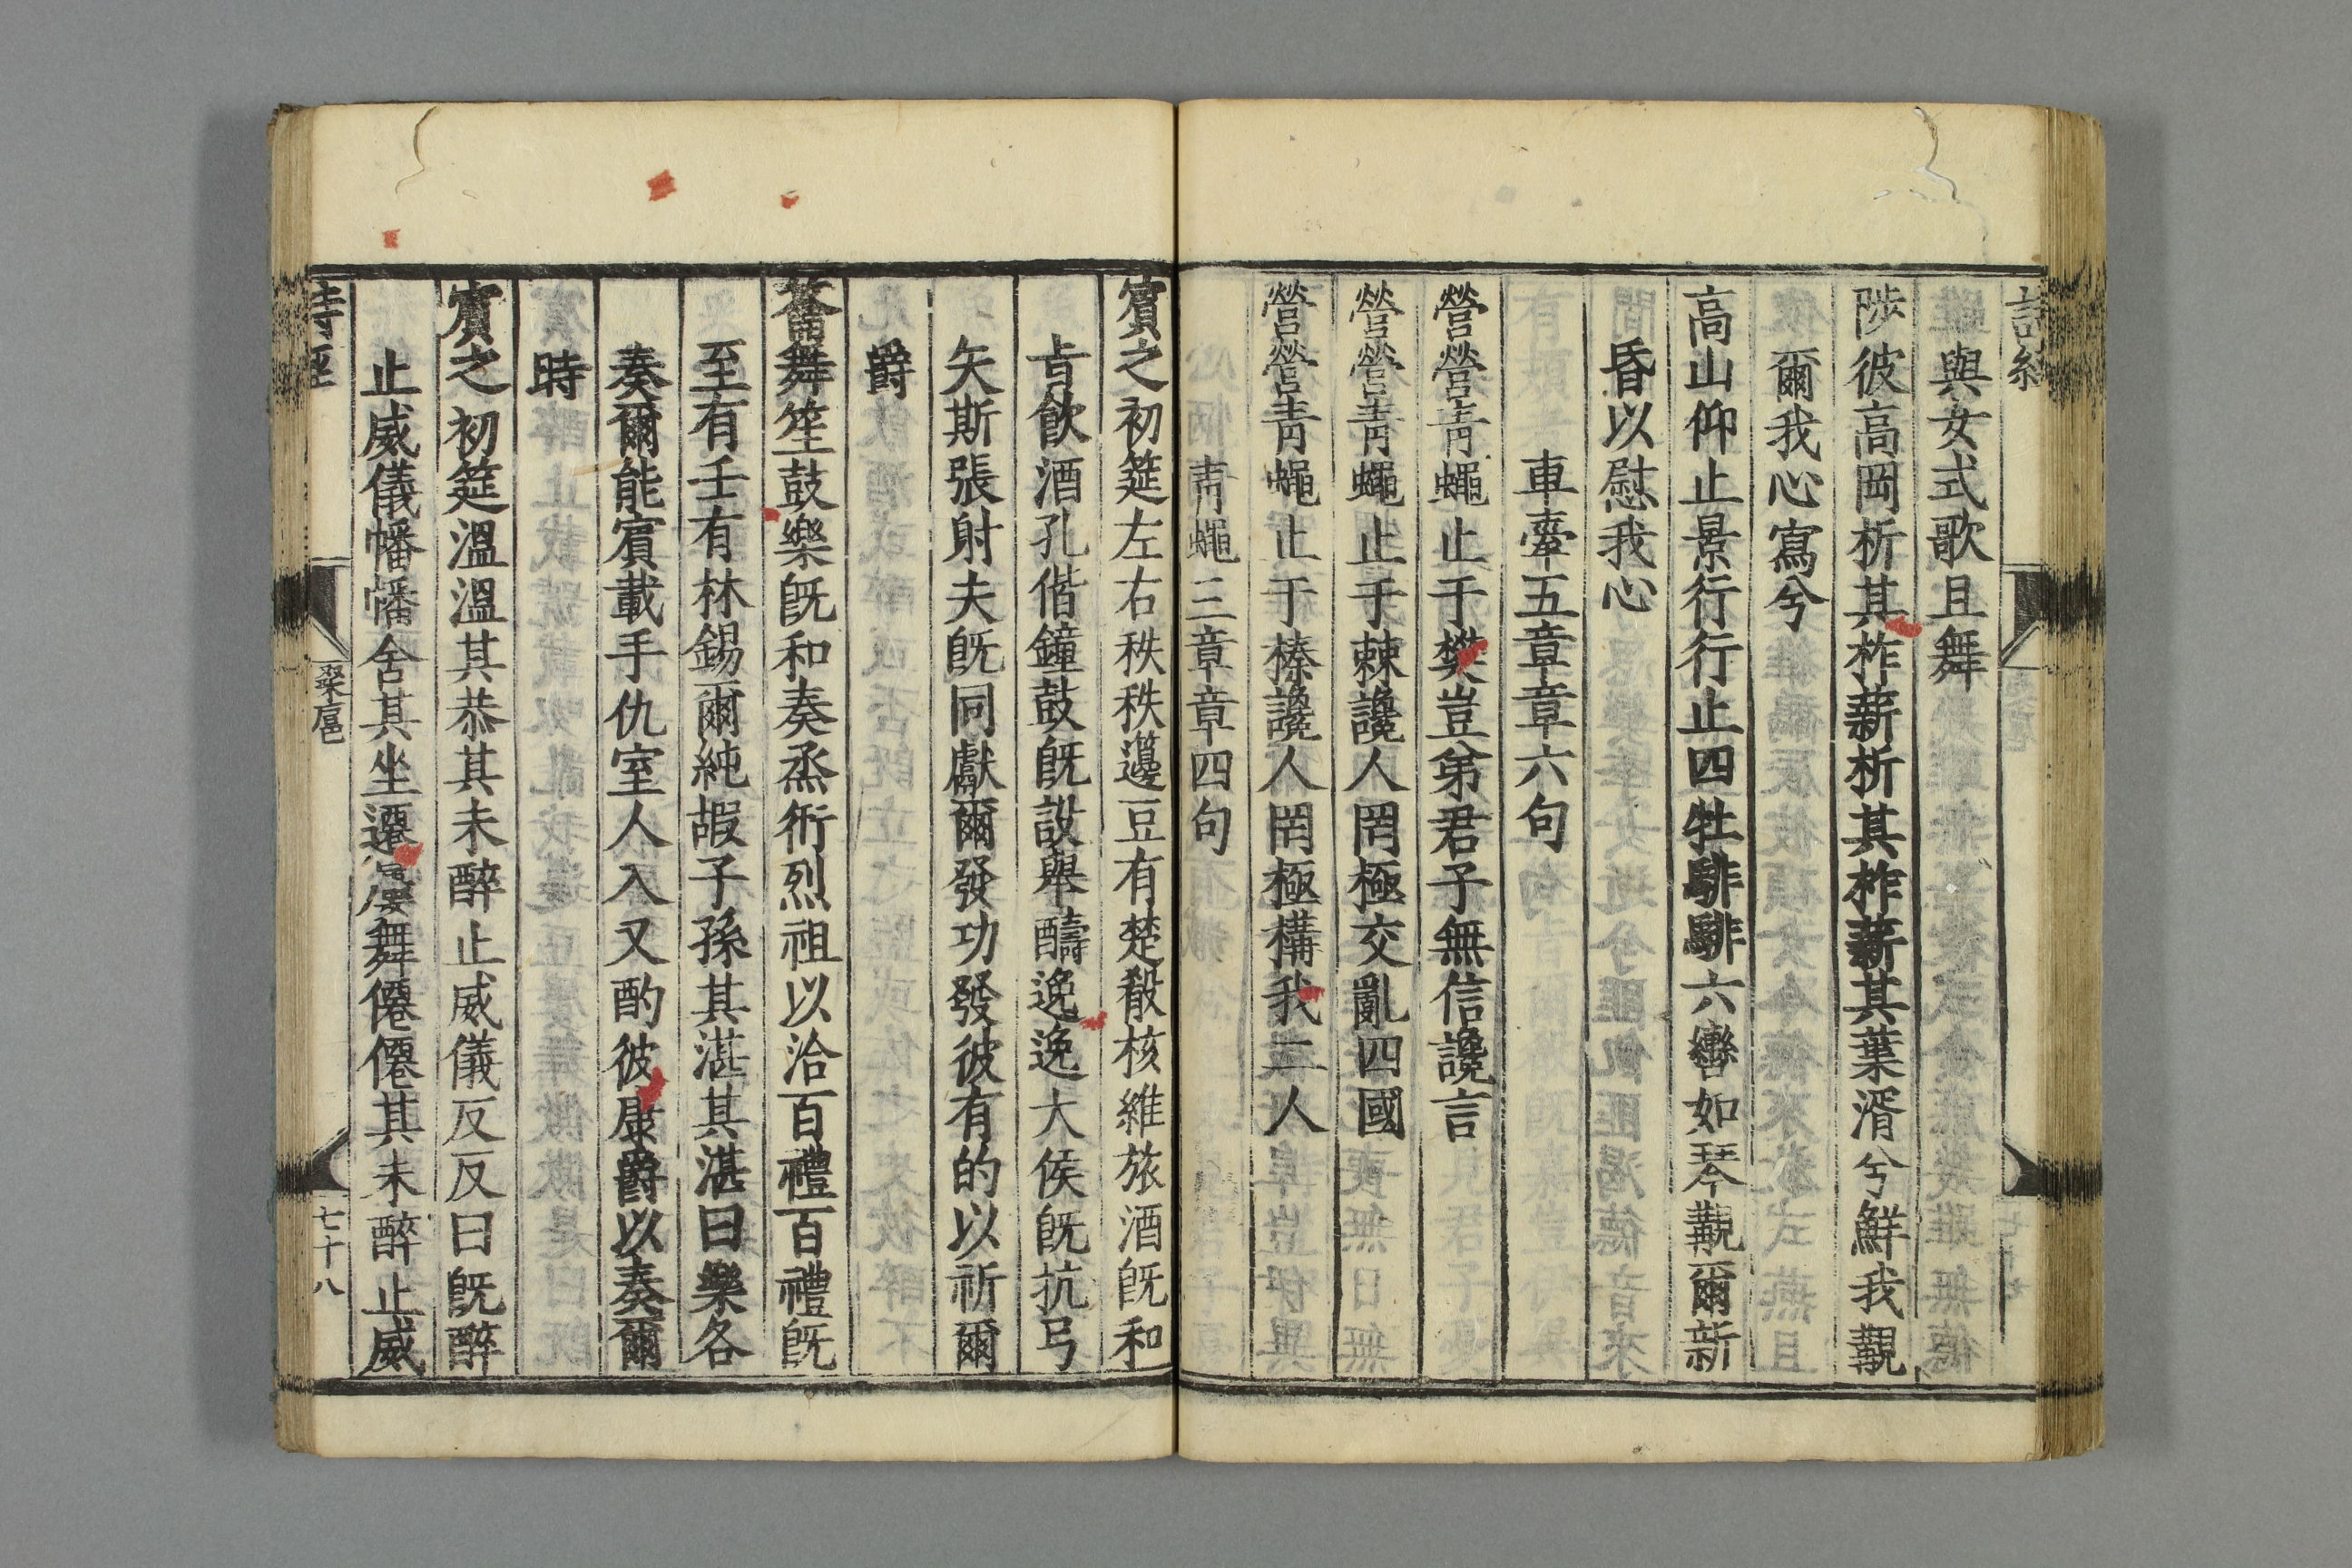 詩經
與女式歌且舞
陟彼高岡析其柞薪析其柞薪其葉湑兮鮮我覯
爾我心寫兮
高山仰止景行行止四牡騑騑六轡如琴覯爾新
昏以慰我心
車舝五章章六句
營營靑蠅止于樊豈弟君子無信讒言
營營靑蠅止于棘讒人罔極交亂四國
營營靑蠅止于榛讒人罔極構我二人
靑蠅三章章四句
賓之初筵左右秩秩籩豆有楚殽核維旅酒旣和
旨飮酒孔偕鐘鼓旣設舉醻逸逸大侯旣抗弓
矢斯張射夫旣同獻爾發功發彼有的以祈爾
爵
籥舞笙鼓樂旣和奏烝衎烈祖以洽百禮百禮旣
至有壬有林錫爾純嘏子孫其湛其湛曰樂各
奏爾能賓載手仇室人入又酌彼康爵以奏爾
時
賓之初筵溫溫其恭其未醉止威儀反反曰旣醉
止威儀幡幡舍其坐遷屢舞僊僊其未醉止威
詩經
桑扈
七十八